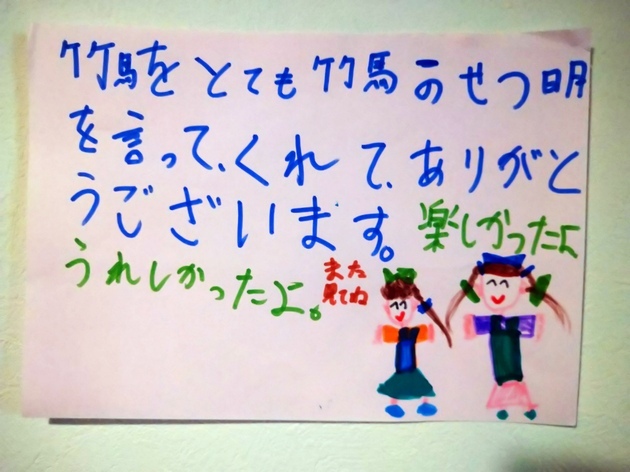 竹馬をとても竹馬のせつ明
を言って、くれて、ありがと
うございます。楽しかったよ
うれしかったよ。
また
見てね